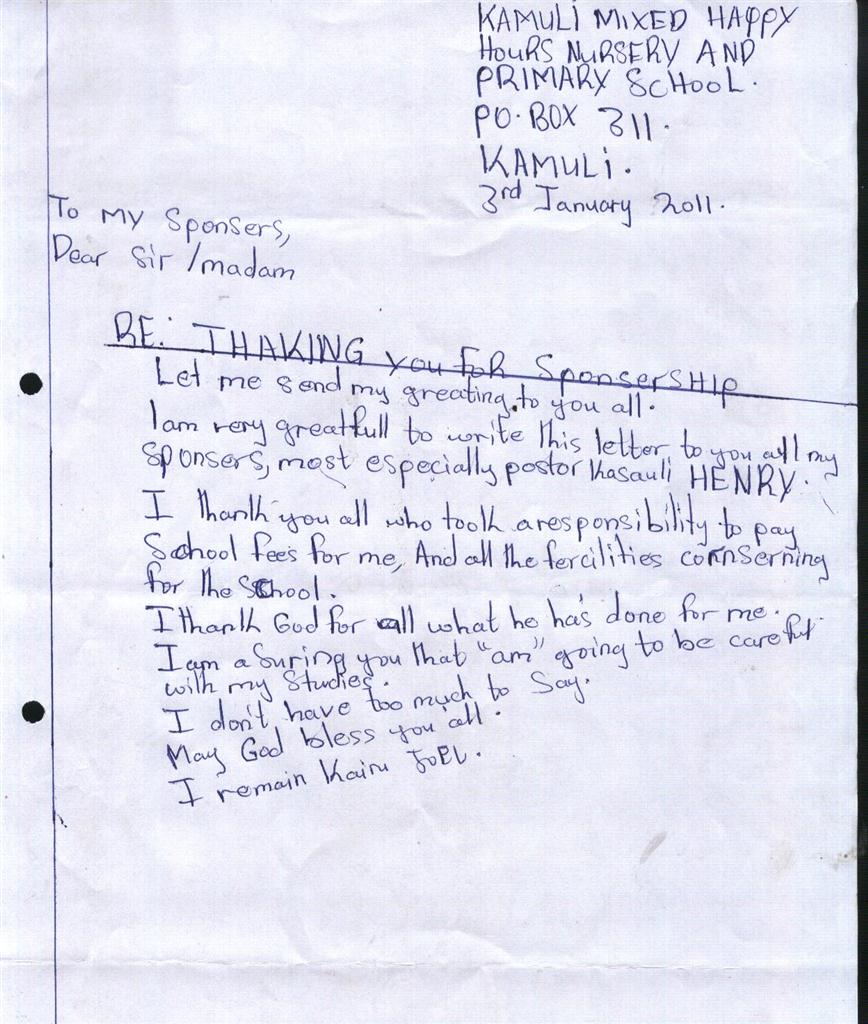 KAMULI MIXED HAPPY
HOURS NURSERY AND
PRIMARY SCHOOL.
P.O. BOX 311.
KAMULI.
3rd January 2011.
To my Sponsers,
Dear Sir /madam
RE: THAKING you FOR SponserSHIP
Let me send my greeting. to you all.
I am very greatfull to write this letter to you all my
Sponsers, most especially postor Kasauli HENRY.
I thank you all who took aresponsibility to pay
School fees for me, And all the fercilities cornserning
for the School.
I thank God for all what he has done for me.
I am a Suring you that "am" going to be careful
with my Studies.
I don't have too much to Say.
May God bless you all.
I remain Kairu JOEL.